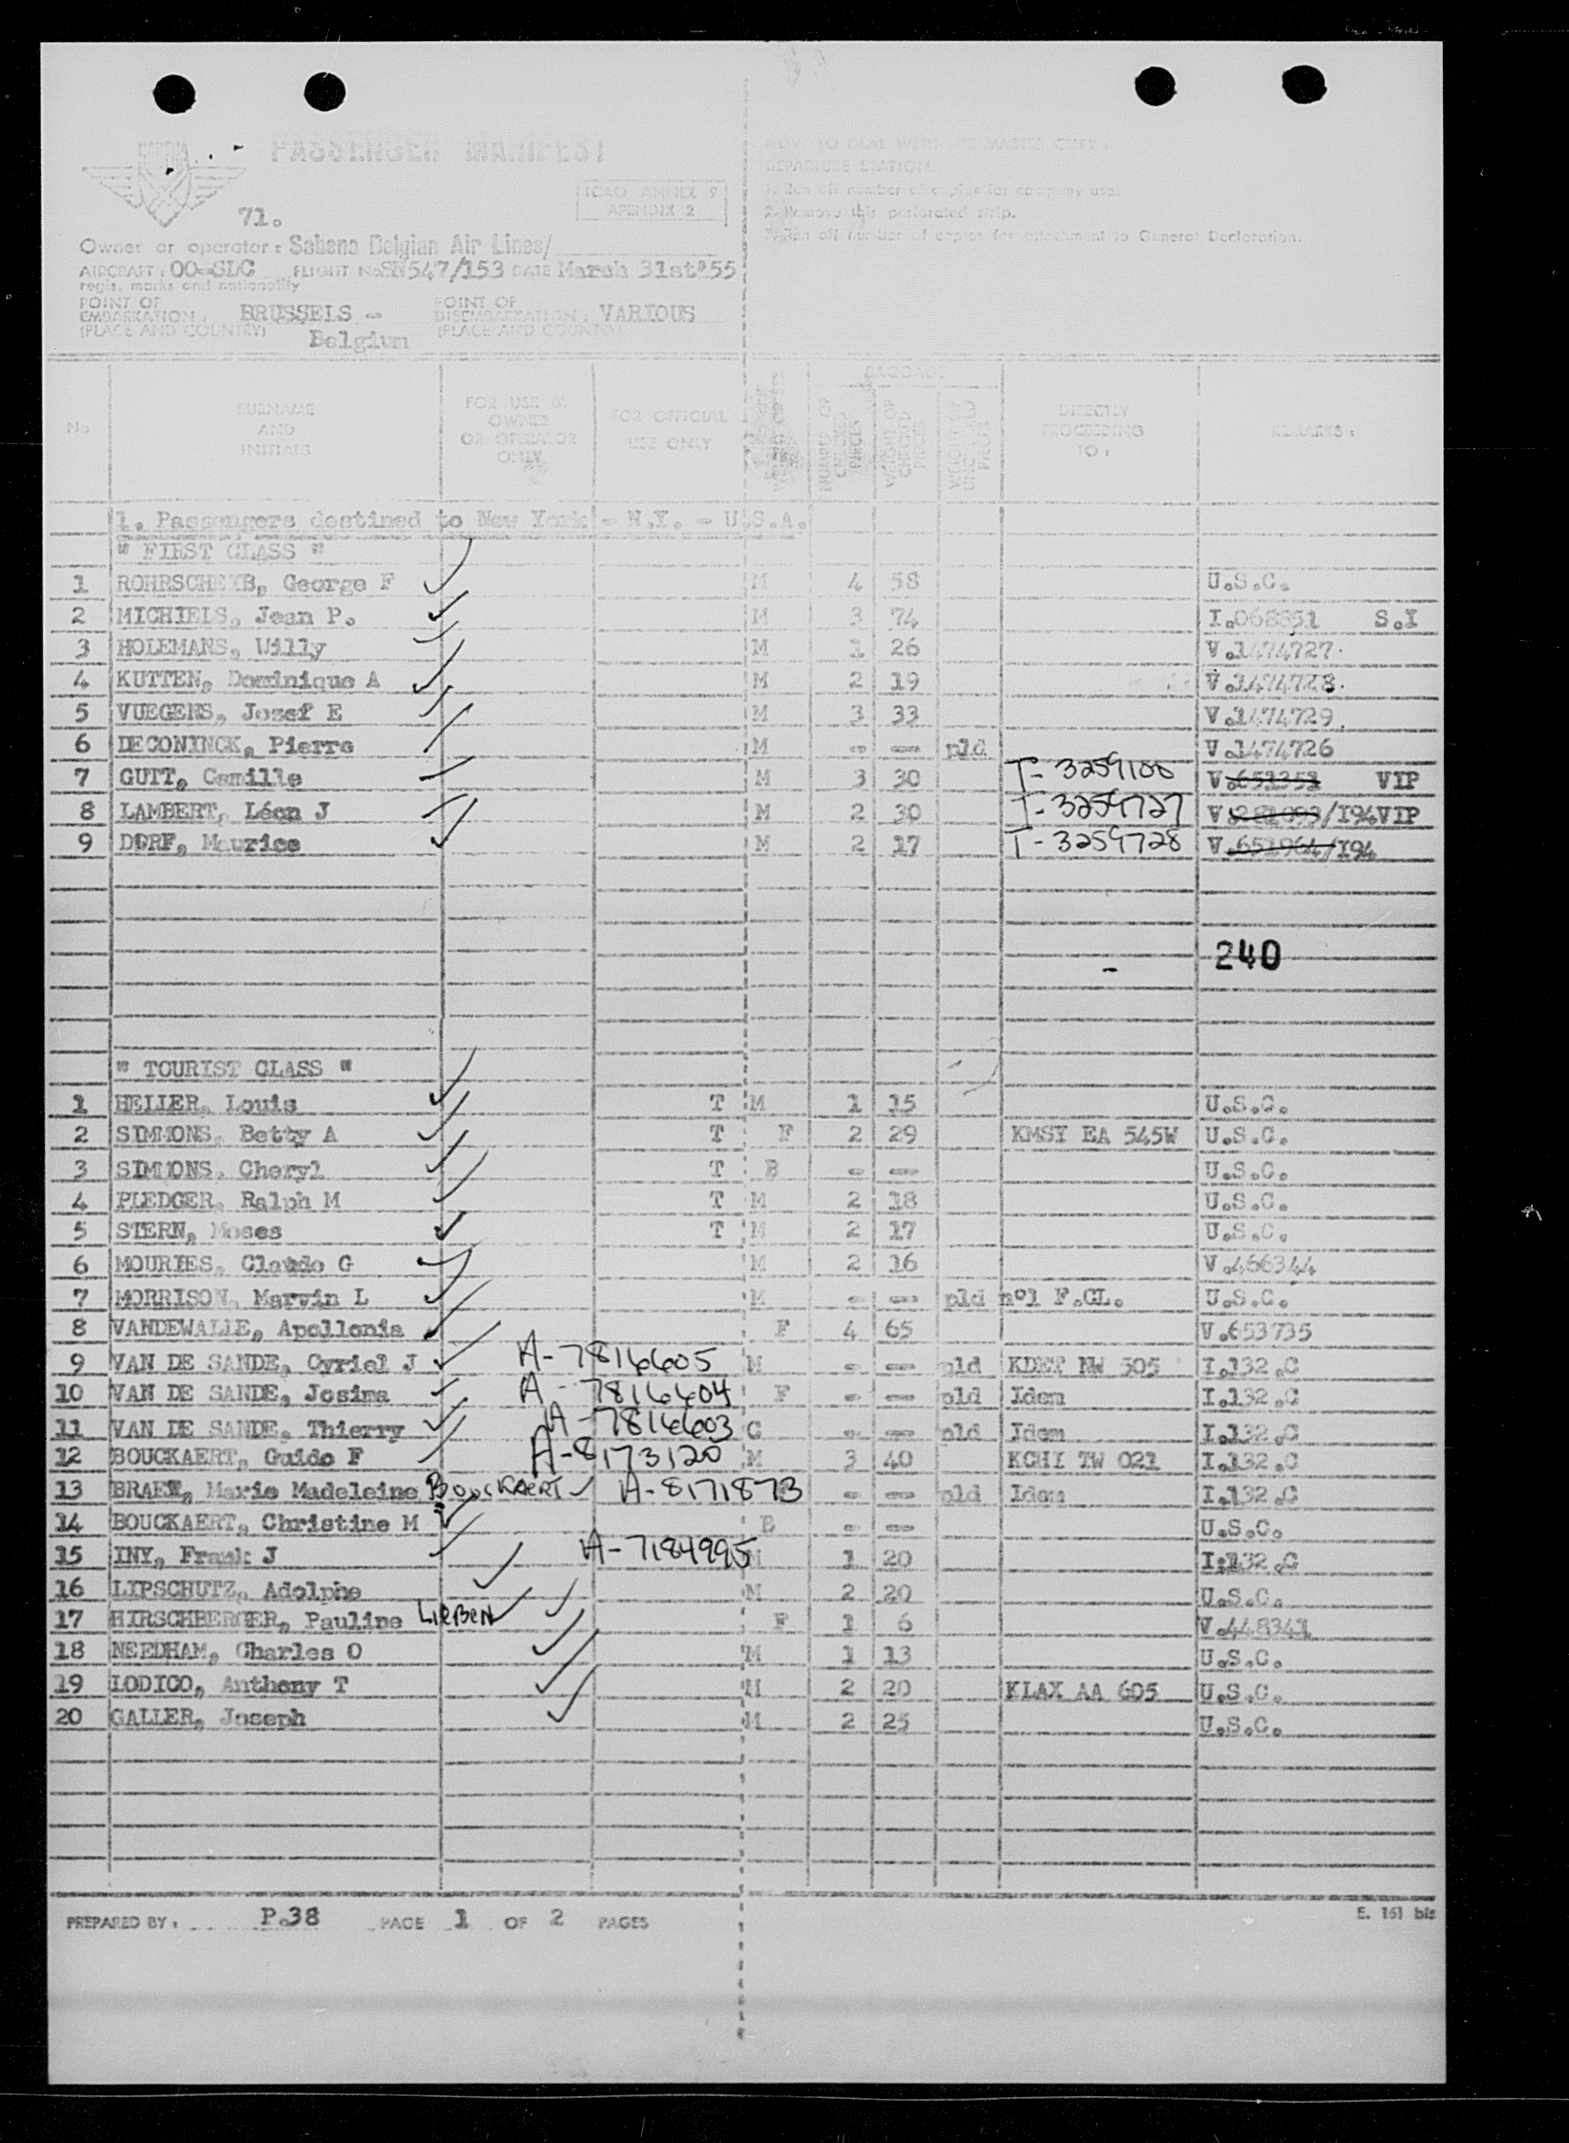 SABENA PASSENGER MANIFEST
ICAO ANNEX 9
APENDIX 2
71.
Owner or operator: Sabena Belgian Air Lines/
AIRCRAFT: OO-SDC FLIGHT No SN547/153 DATE March 31st'55
regis. marks and nationality
POINT OF EMBARKATION: BRUSSELS - POINT OF DISEMBARKATION: VARIOUS
(PLACE AND COUNTRY) Belgium (PLACE AND COUNTRY)
DEPARTURE STATION.
1. Run off number of copies for company use.
2. Remove this perforated strip.
3. Run off number of copies for attachment to General Declaration.
BAGGAGE
No SURNAME AND INITIALS FOR USE BY OWNER OR OPERATOR ONLY FOR OFFICIAL USE ONLY NUMBER OF CHECKED PIECES WEIGHT OF CHECKED PIECES DIRECTLY PROCEEDING TO: REMARKS:
1. Passengers destined to New York - N.Y. - U.S.A.
" FIRST CLASS "
1 George F M 4 58 U.S.C.
2 MICHIELS, Jean P. M 3 74 I.068851 S.I
3 HOLEMANS, Willy M 1 26 V.1474727.
4 KUTTEN, Dominique A M 2 19 V.1474728.
5 VUEGENS, Josef E M 3 33 V.1474729.
6 DECONINCK, Pierre M - -- pld V.1474726
7 GUTT, Camille M 3 30 T-3259100 V.651351 VIP
8 LAMBERT, Léon J M 2 30 T-3259727 /I94VIP
9 DORF, Maurice M 2 17 T-3259728 V.651964/I94
240
" TOURIST CLASS "
1 HELLER, Louis T M 1 15 U.S.C.
2 SIMMONS, Betty A T F 2 29 KMSY EA 545W U.S.C.
3 SIMMONS, Cheryl T B - -- U.S.C.
4 PLEDGER, Ralph M T M 2 18 U.S.C.
5 STERN, Moses T M 2 17 U.S.C.
6 MOURIES, Claude G M 2 16 V.466344
7 MORRISON, Marvin L M - -- pld n°1 F.CL. U.S.C.
8 VANDEWALLE, Apollonia F 4 65 V.653735
9 VAN DE SANDE, Cyriel J A-7816605 M - -- pld KDET NW 505 I.132.C
10 VAN DE SANDE, Josima A-7816604 F - -- pld Idem I.132.C
11 VAN DE SANDE, Thierry A-7816603 C - -- pld Idem I.132.C
12 BOUCKAERT, Guido F A-8173120 M 3 40 KCHI TW 021 I.132.C
13 BRAEM, Marie Madeleine BOUCKAERT A-8171873 - -- pld Idem I.132.C
14 BOUCKAERT, Christine M B - -- U.S.C.
15 INY, Frank J A-7184995 M 1 20 I.132.C
16 LIPSCHUTZ, Adolphe M 2 20 U.S.C.
17 HIRSCHBERGER, Pauline LIEBEN F 1 6 V.448341
18 NEEDHAM, Charles O M 1 13 U.S.C.
19 LODICO, Anthony T M 2 20 KLAX AA 605 U.S.C.
20 GALLER, Joseph M 2 25 U.S.C.
PREPARED BY: P.38 PAGE 1 OF 2 PAGES
E. 161 bis